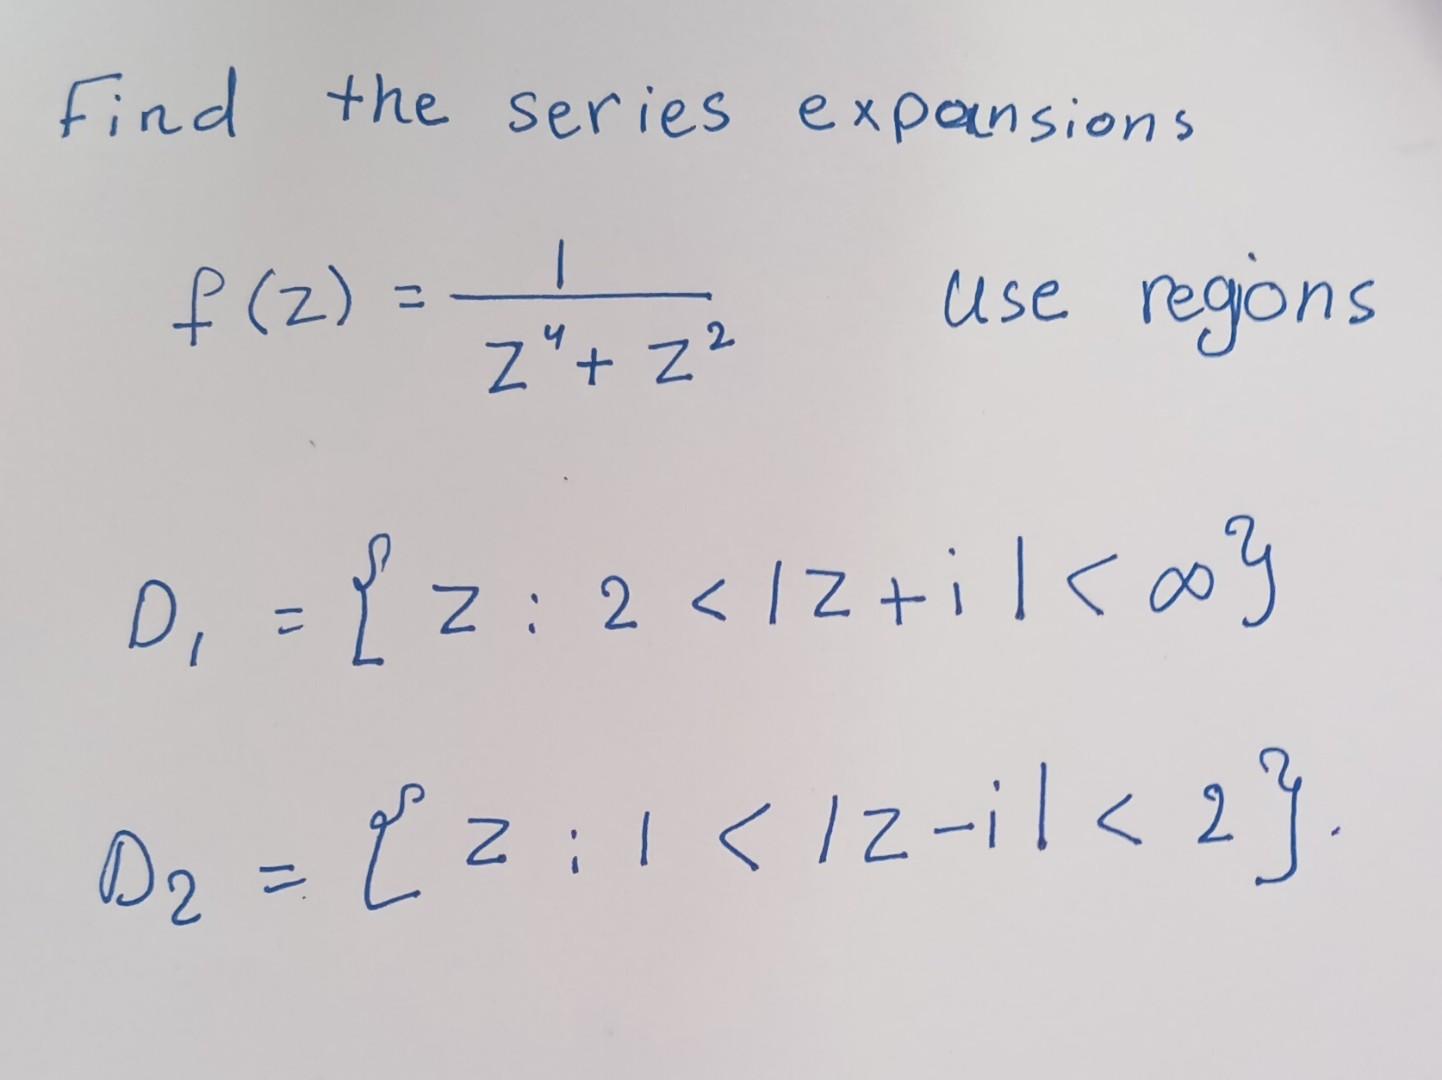 Find the series expansions
f(z) = 1/(z⁴ + z²) use regions
D₁ = { z : 2 < |z + i| < ∞}
D₂ = { z : 1 < |z - i| < 2}.